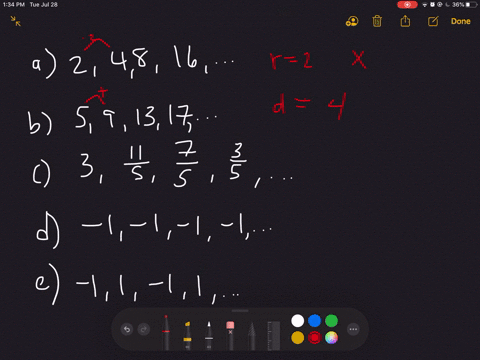 1:34 PM Tue Jul 28
36%
Done
a) 2, 4, 8, 16, ... r = 2 X
b) 5, 9, 13, 17, ... d = 4
+
c) 3, 11/5, 7/5, 3/5, ...
d) -1, -1, -1, -1, ...
e) -1, 1, -1, 1, ...